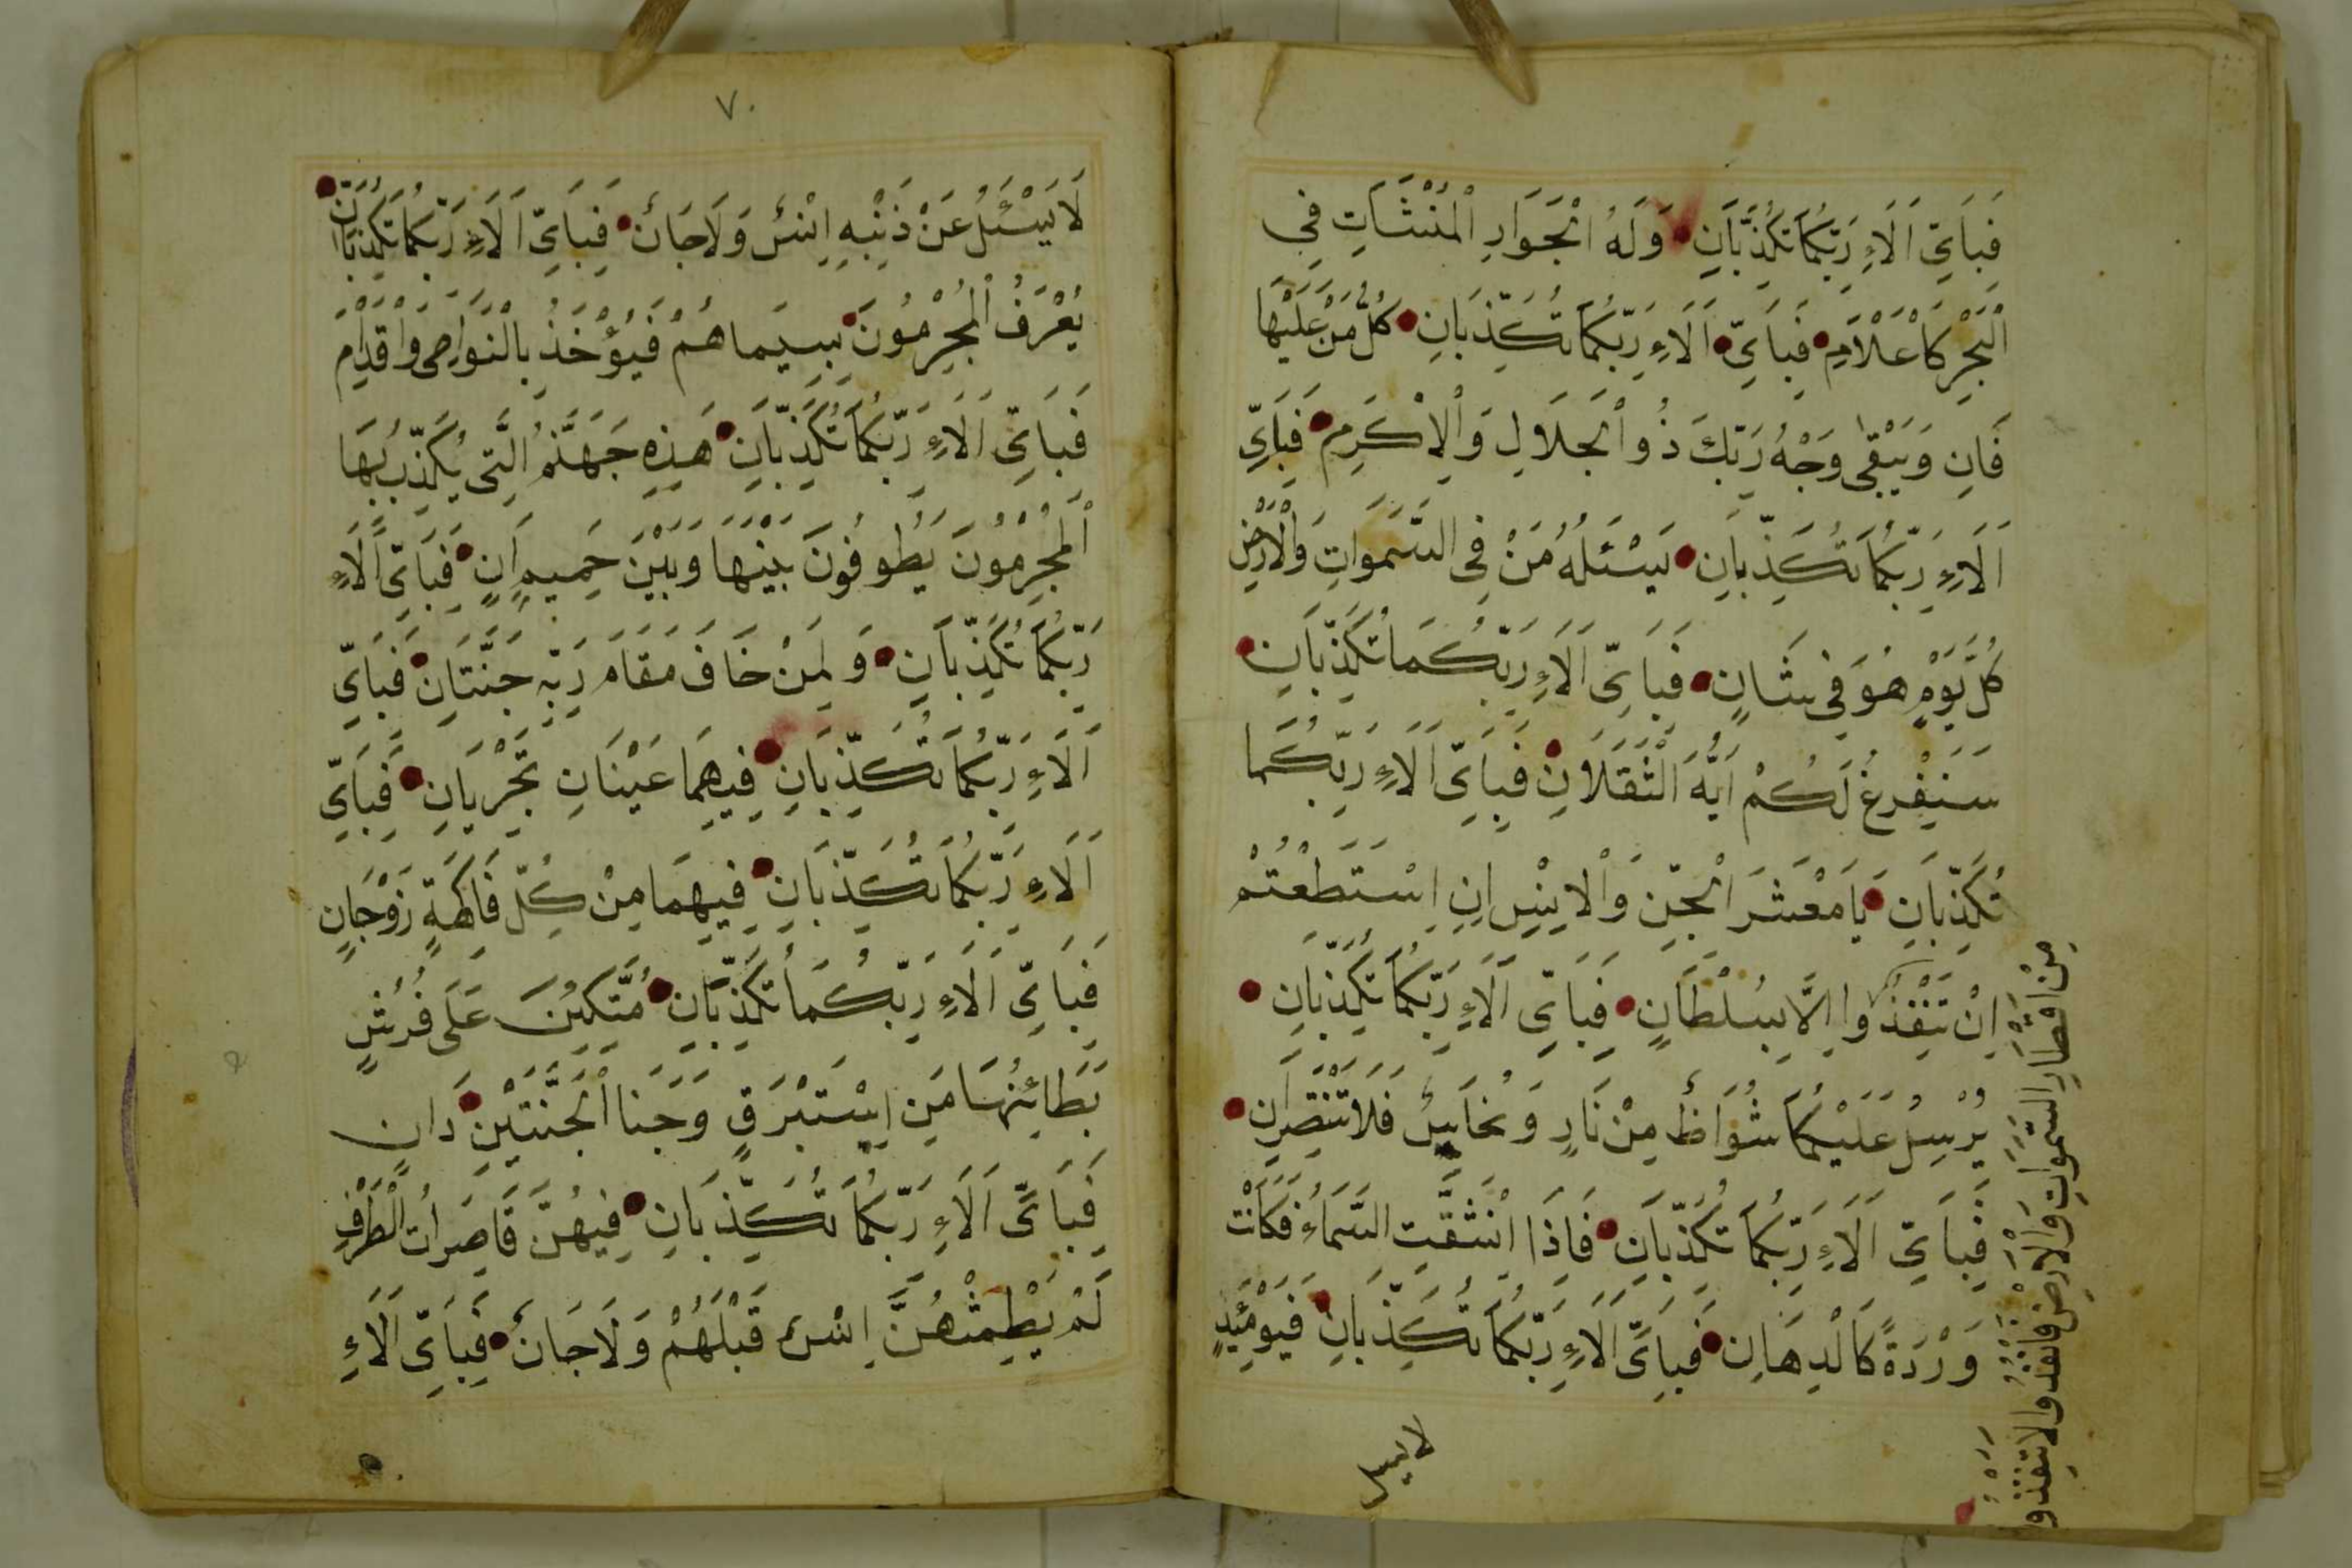 فَبِاَيِّ اَلَاءِ رَبِّكُمَا تُكَذِّبَانِ وَلَهُ الْجَوَارِ الْمُنْشَاتِ فِي
الْبَحْرِ كَاعْلَامِ فَبِاَيِّ اَلَاءِ رَبِّكُمَا تُكَذِّبَانِ كُلُّ مَنْ عَلَيْهَا
فَانِ وَيَبْقٰى وَجْهُ رَبِّكَ ذُو الْجَلَالِ وَالْاِكْرَمِ فَبِاَيِّ
اَلَاءِ رَبِّكُمَا تُكَذِّبَانِ يَسْئَلُهُ مَنْ فِي السَّمَوَاتِ وَالْاَرْضِ
كُلَّ يَوْمٍ هُوَ فِي شَانٍ فَبِاَيِّ اَلَاءِ رَبِّكُمَا تُكَذِّبَانِ
سَنَفْرِغُ لَكُمْ اَيُّهَ الثَّقَلَانِ فَبِاَيِّ اَلَاءِ رَبِّكُمَا
تُكَذِّبَانِ يَا مَعْشَرَ الْجِنِّ وَالْاِنْسِ اِنِ اسْتَطَعْتُمْ
اِنْ تَنْفُذُوا اِلَّا بِسُلْطَانٍ فَبِاَيِّ اَلَاءِ رَبِّكُمَا تُكَذِّبَانِ
يُرْسِلُ عَلَيْكُمَا شُوَاظٌ مِنْ نَارٍ وَنُحَاسٌ فَلَا تَنْتَصِرَانِ
فَبِاَيِّ اَلَاءِ رَبِّكُمَا تُكَذِّبَانِ فَاِذَا انْشَقَّتِ السَّمَاءُ فَكَانَتْ
وَرْدَةً كَالْدِهَانِ فَبِاَيِّ اَلَاءِ رَبِّكُمَا تُكَذِّبَانِ فَيَوْمَئِذٍ
مِنْ اَقْطَارِ السَّمٰوَاتِ وَالْاَرْضِ فَانْفُذُوا لَا تَنْفُذُو
لا يسل
٧٠
لَا يَسْئَلُ عَنْ ذَنْبِهِ اِنْسٌ وَلَا جَانٌ فَبِاَيِّ اَلَاءِ رَبِّكُمَا تُكَذِّبَانِ
يُعْرَفُ الْمُجْرِمُونَ بِسِيمَاهُمْ فَيُؤْخَذُ بِالْنَوَاصِى وَاقْدَامِ
فَبِاَيِّ اَلَاءِ رَبِّكُمَا تُكَذِّبَانِ هَذِهِ جَهَنَّمُ الَّتِى يُكَذِّبُ بِهَا
الْمُجْرِمُونَ يَطُوفُونَ بَيْنَهَا وَبَيْنَ حَمِيمٍ اَنٍ فَبِاَيِّ اَلَاءِ
رَبِّكُمَا تُكَذِّبَانِ وَلِمَنْ خَافَ مَقَامَ رَبِّهِ جَنَّتَانِ فَبِاَيِّ
اَلَاءِ رَبِّكُمَا تُكَذِّبَانِ فِيهِمَا عَيْنَانِ تَجْرِيَانِ فَبِاَيِّ
اَلَاءِ رَبِّكُمَا تُكَذِّبَانِ فِيهِمَا مِنْ كُلِّ فَاكِهَةٍ زَوْجَانِ
فَبِاَيِّ اَلَاءِ رَبِّكُمَا تُكَذِّبَانِ مُتَّكِئِنَ عَلَى فُرُشٍ
بَطَائِنُهَا مِنِ اِسْتَبْرَقٍ وَجَنَا الْجَنَّتَيْنِ دَانٍ
فَبِاَيِّ اَلَاءِ رَبِّكُمَا تُكَذِّبَانِ فِيهُنَّ قَاصِرَاتُ الْطَّرْفِ
لَمْ يَطْمِثْهُنَّ اِنْسٌ قَبْلَهُمْ وَلَا جَانٌ فَبِاَيِّ اَلَاءِ